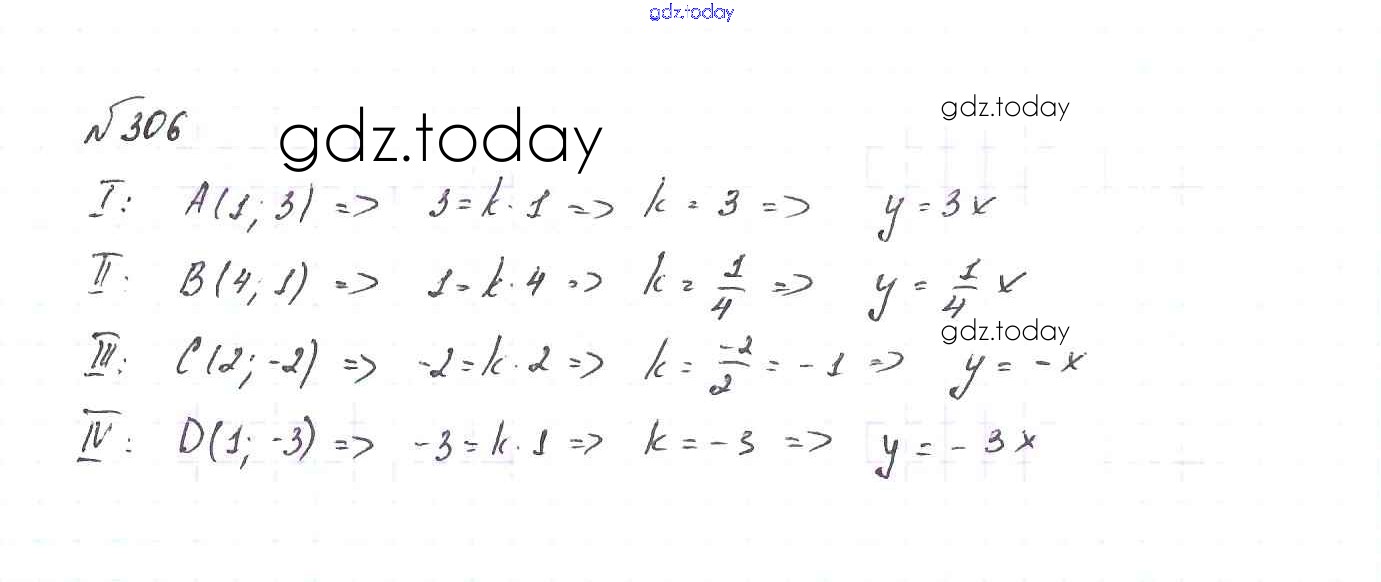 gdz.today
gdz.today
№306 gdz.today
I: A(1; 3) => 3 = k · 1 => k = 3 => y = 3x
II: B(4; 1) => 1 = k · 4 => k = 1/4 => y = 1/4 x
gdz.today
III: C(2; -2) => -2 = k · 2 => k = -2/2 = -1 => y = -x
IV: D(1; -3) => -3 = k · 1 => k = -3 => y = -3x